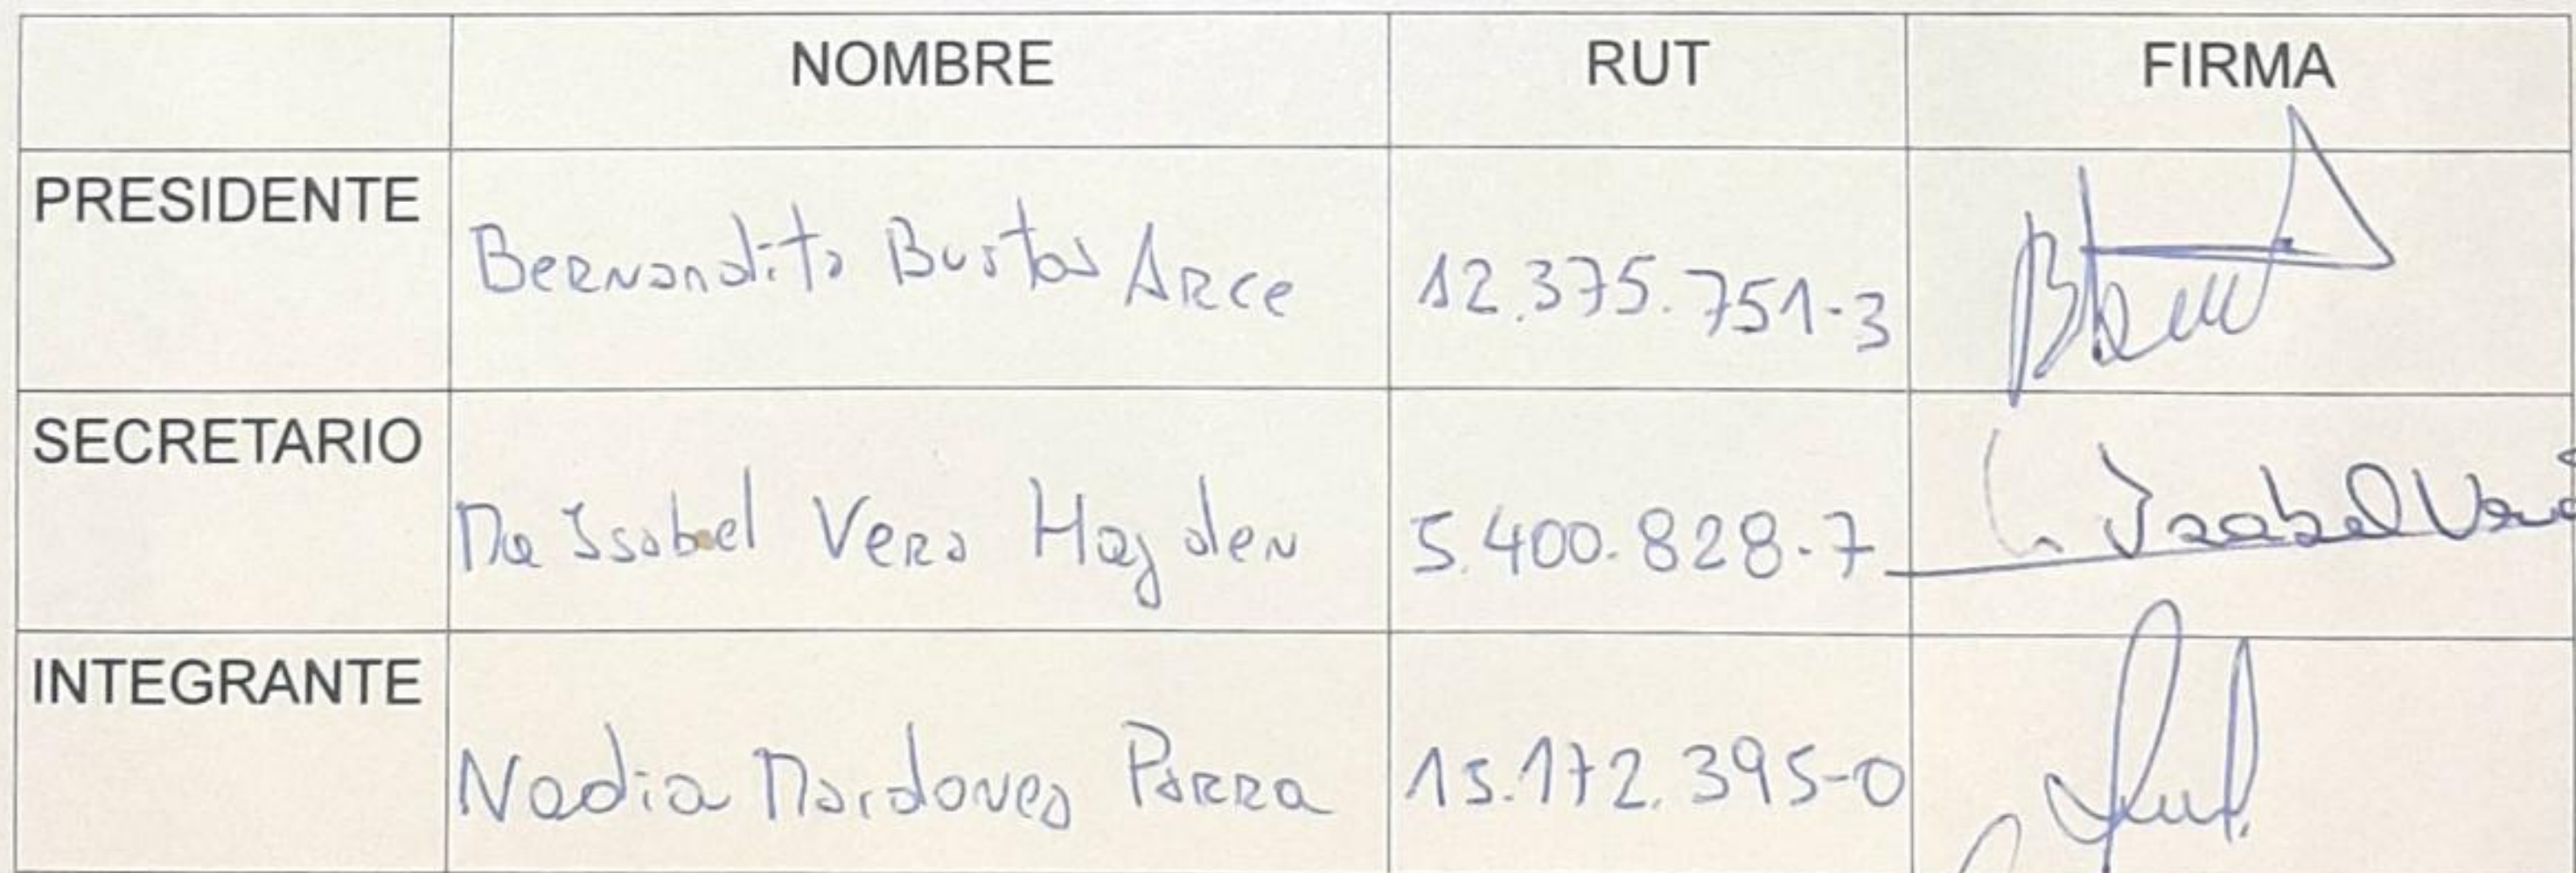 NOMBRE RUT FIRMA
PRESIDENTE Bernandita Bustos Arce 12.375.751-3
SECRETARIO Ma Isabel Vera Hayden 5.400.828-7 Isabel Vera
INTEGRANTE Nadia Mardones Parra 15.172.395-0